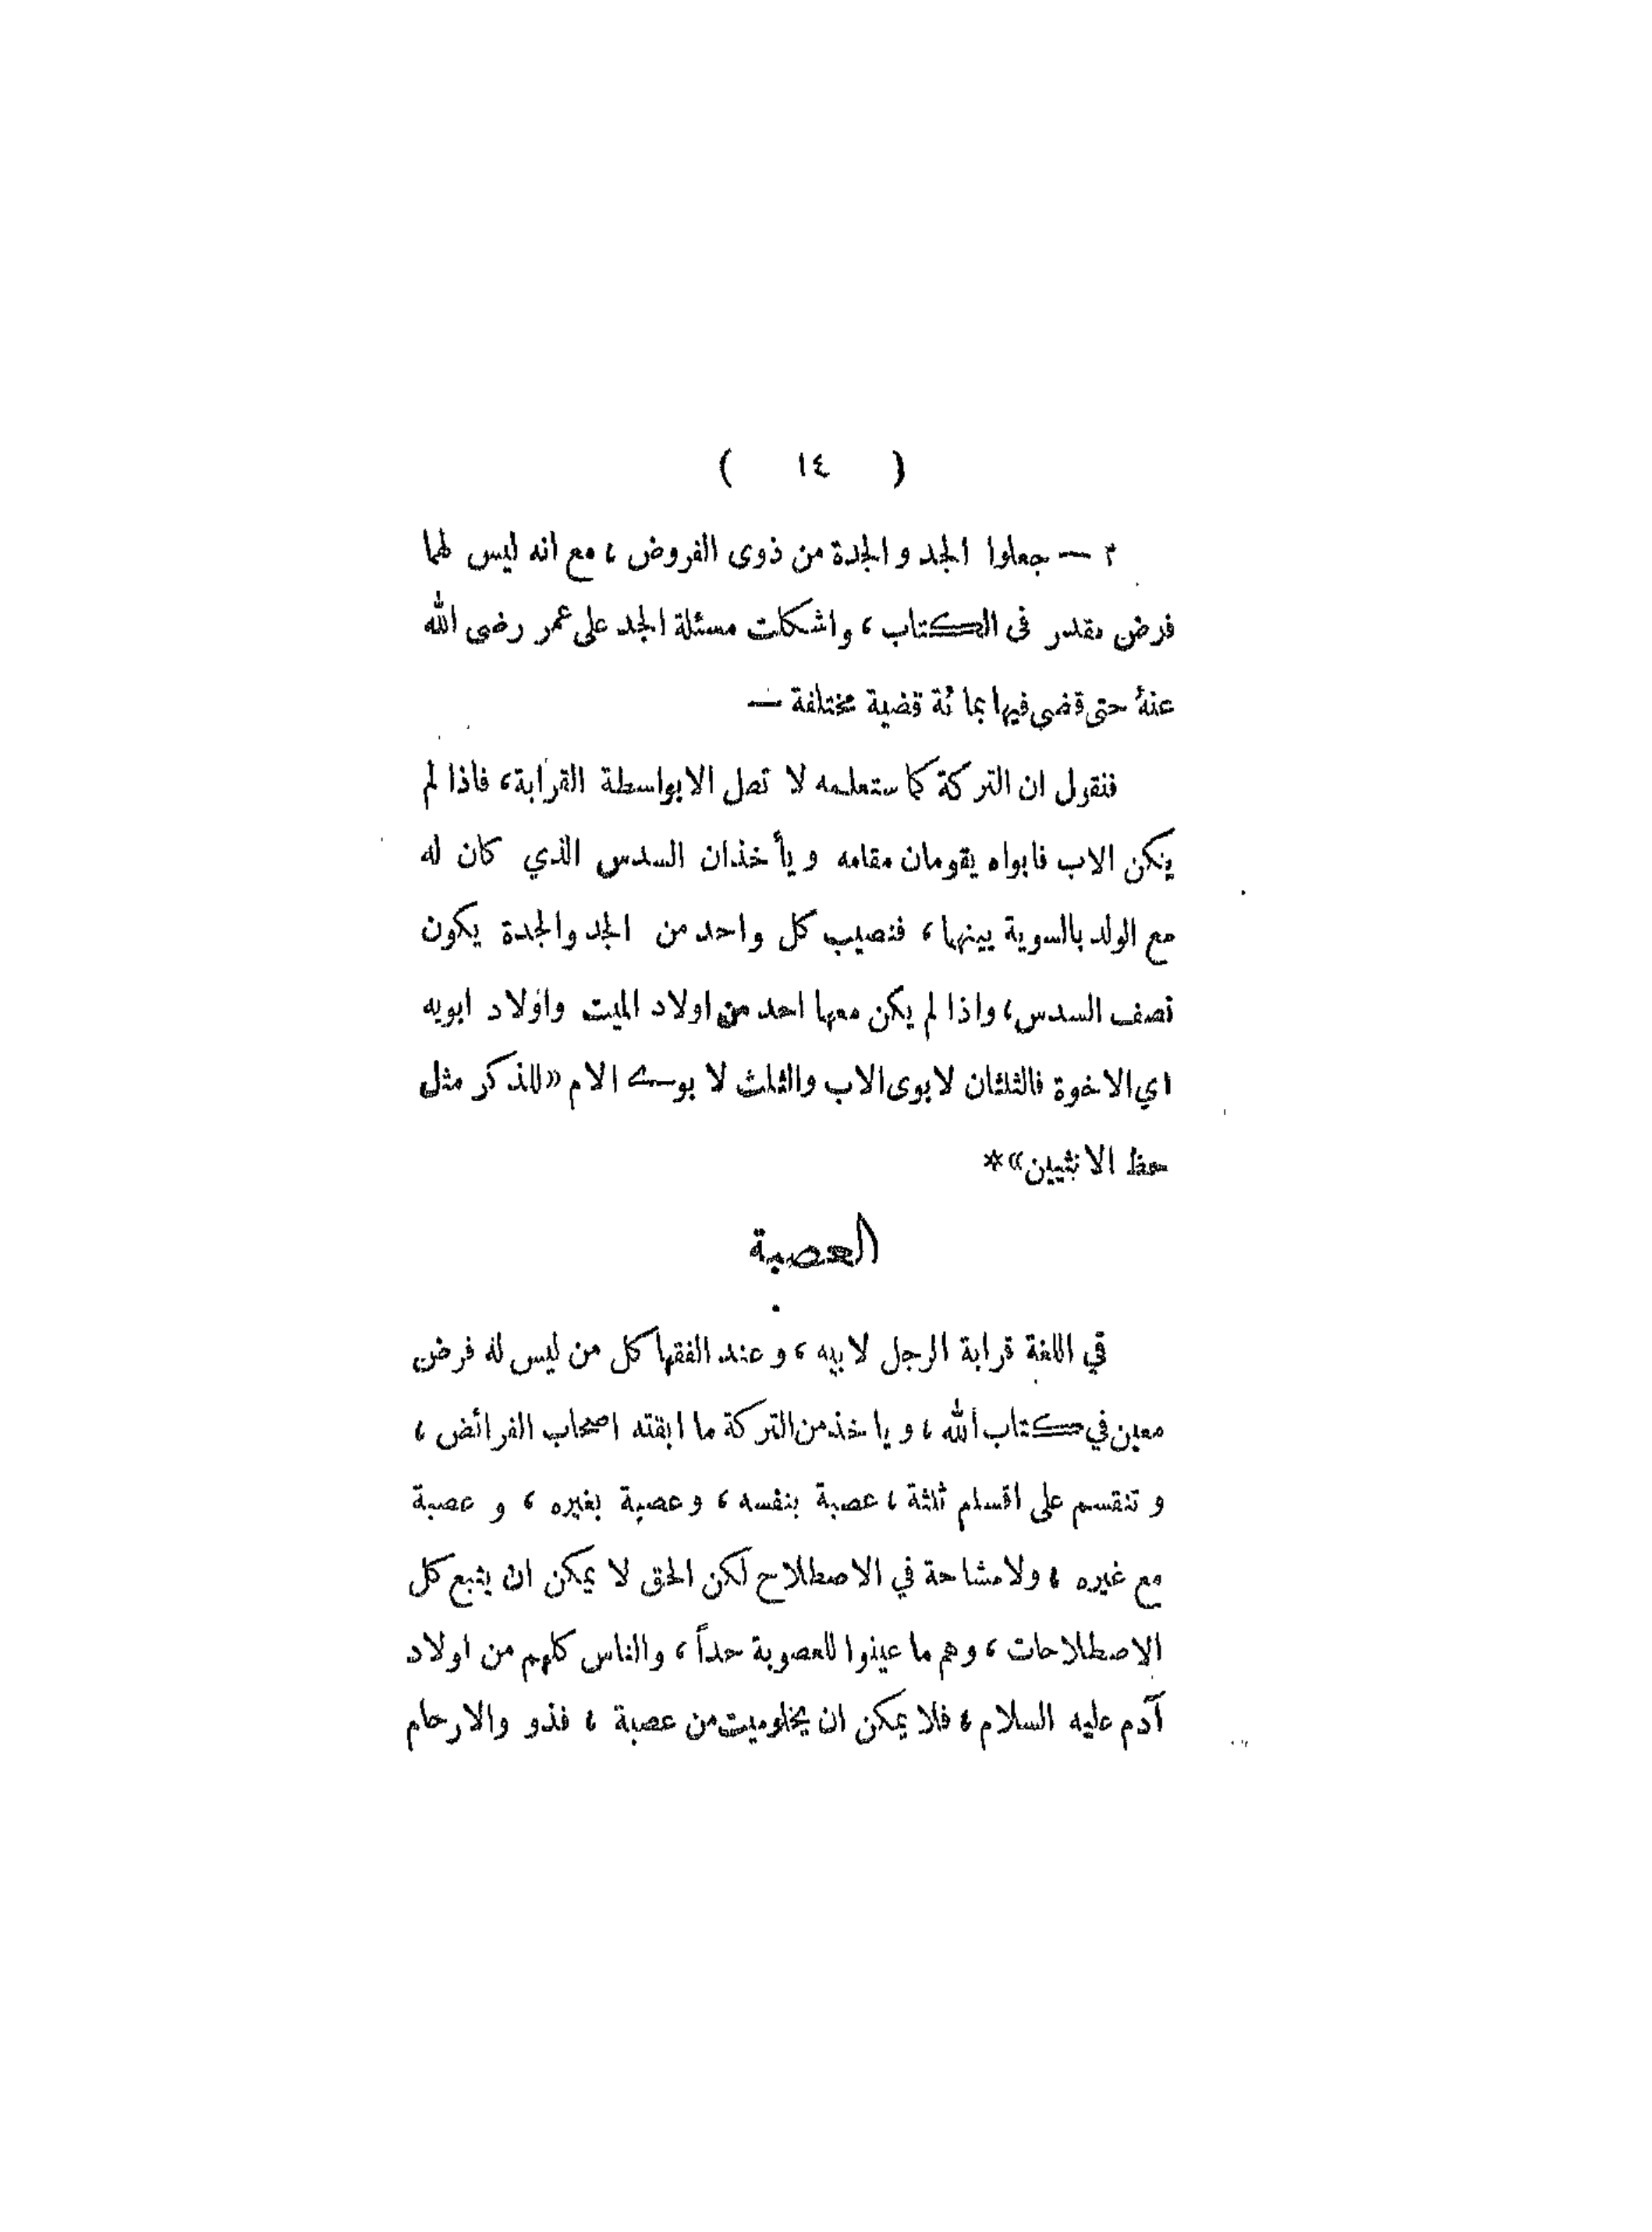 ( ١٤ )
٢ — جعلوا الجد و الجدة من ذوى الفروض ، مع انه ليس لهما
فرض مقدر فى الكتاب ، واشكلت مسئلة الجد على عمر رضى الله
عنهُ حتى قضى فيها بمائة قضية مختلفة —
فنقول ان التركة كما ستعلمه لا تصل الابواسطة القرابة، فاذا لم
يكن الاب فابواه يقومان مقامه و يأخذان السدس الذي كان له
مع الولد بالسوية بينهما ، فنصيب كل واحد من الجد والجدة يكون
نصف السدس، واذا لم يكن معهما احد من اولاد الميت واولاد ابويه
اي الاخوة فالثلثان لابوى الاب والثلث لا بوى الام «للذكر مثل
حظ الانثيين»*
العصبة
في اللغة قرابة الرجل لابيه ، و عند الفقها كل من ليس له فرض
معين في كتاب الله ، و ياخذ من التركة ما ابقته اصحاب الفرائض ،
و تنقسم على اقسام ثلثة ، عصبة بنفسه ، و عصبة بغيره ، و عصبة
مع غيره ، ولا مشاحة في الاصطلاح لكن الحق لا يمكن ان يتبع كل
الاصطلاحات ، وهم ما عينوا للعصوبة حداً ، والناس كلهم من اولاد
آدم عليه السلام ، فلا يمكن ان يخلوميت من عصبة ، فذو والارحام